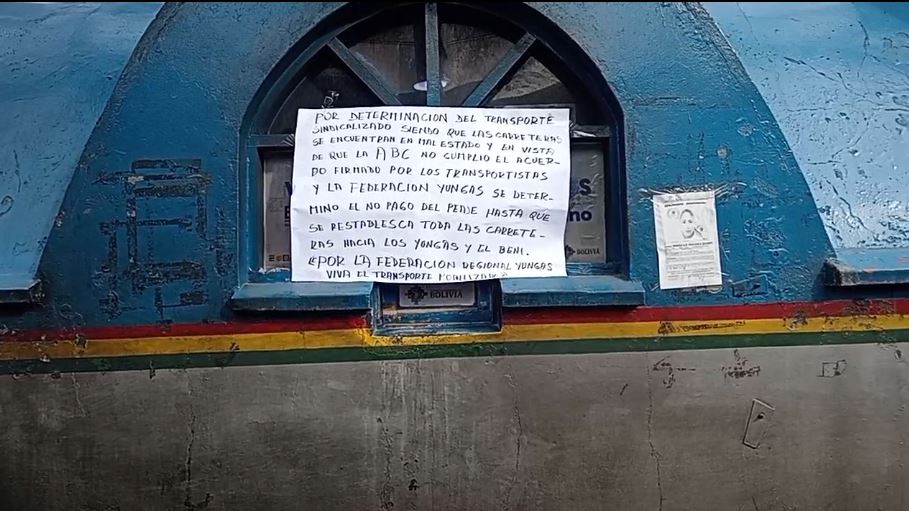 POR DETERMINACION DEL TRANSPORTE
SINDICALIZADO SIENDO QUE LAS CARRETERAS
SE ENCUENTRAN EN MAL ESTADO Y EN VISTA
DE QUE LA ABC NO CUMPLIO EL ACUER-
DO FIRMADO POR LOS TRANSPORTISTAS
Y LA FEDERACION YUNGAS SE DETER-
MINO EL NO PAGO DEL PEAJE HASTA QUE
SE RESTABLESCA TODA LAS CARRETE-
RAS HACIA LOS YUNGAS Y EL BENI.
POR LA FEDERACION REGIONAL YUNGAS
VIVA EL TRANSPORTE
BOLIVIA
BOLIVIA